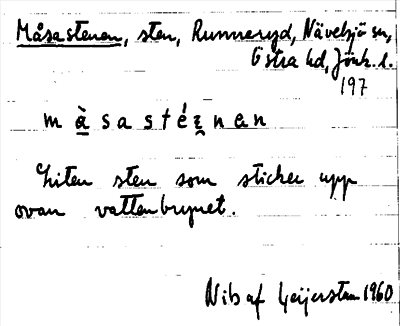 Måsastenen, sten, Runneryd, Nävelsjö sn,
Östra hd, Jönk. l.
197
m à s a s t é ɛ n e n
Liten sten som sticker upp
ovan vattenbrynet.
Nib af Geijerstam 1960